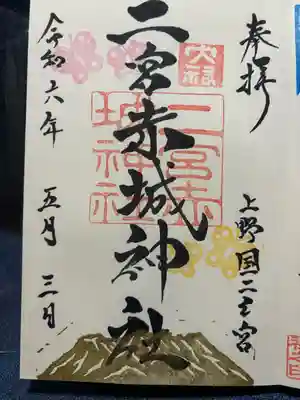 奉拝
上野国二之宮
二宮赤城神社
二宮赤
城神社
令和六年 五月 三日